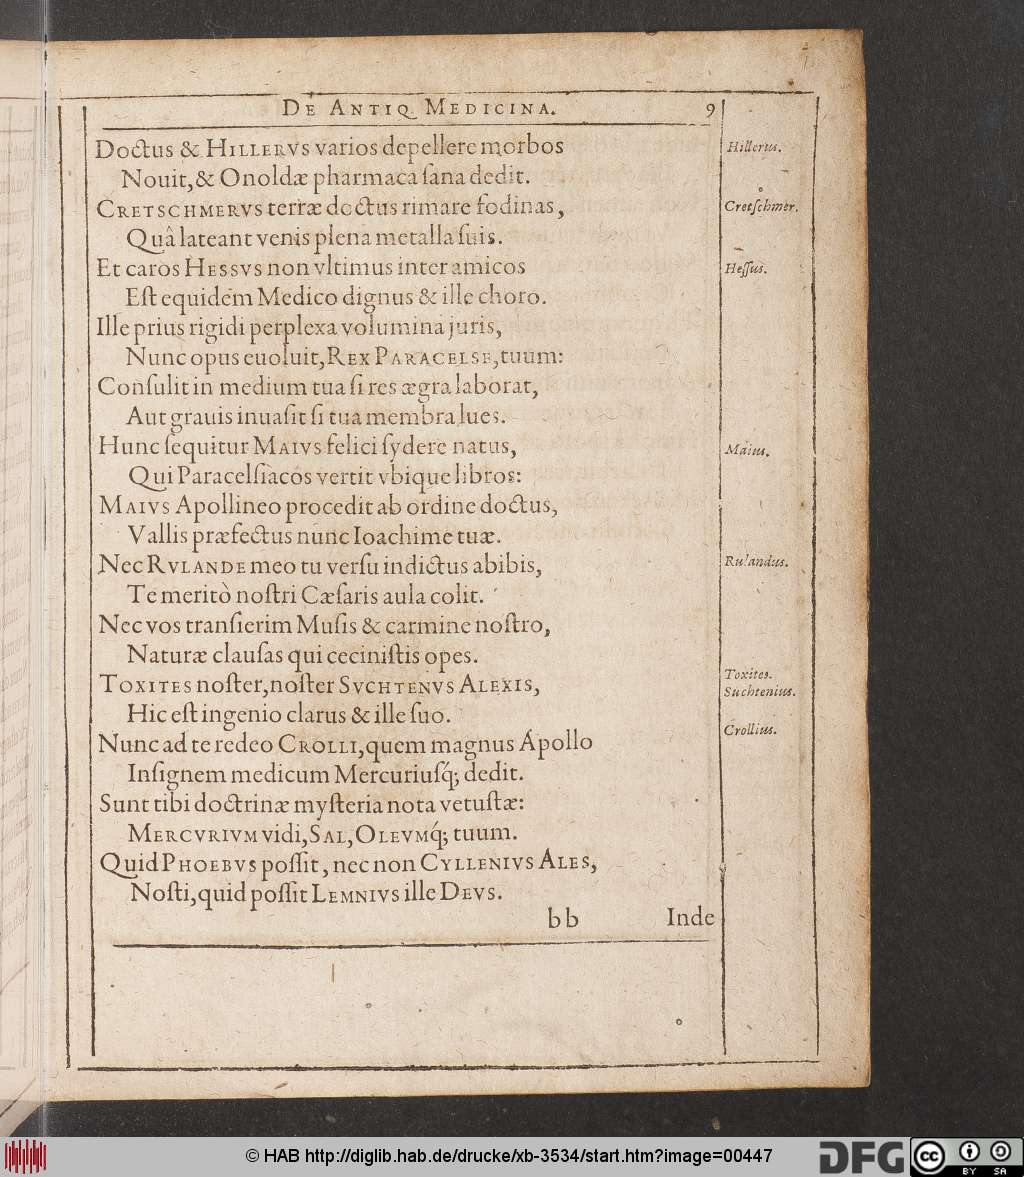 DE ANTIQ. MEDICINA. 9
Doctus & HILLERVS varios depellere morbos
Nouit, & Onoldæ pharmaca ſana dedit.
CRETSCHMERVS terræ doctus rimare fodinas,
Quâ lateant venis plena metalla ſuis.
Et caros HESSVS non vltimus inter amicos
Eſt equidem Medico dignus & ille choro.
Ille prius rigidi perplexa volumina juris,
Nunc opus euoluit, REX PARACELSE, tuum:
Conſulit in medium tua ſi res ægra laborat,
Aut grauis inuaſit ſi tua membra lues.
Hunc ſequitur MAIVS felici ſydere natus,
Qui Paracelſiacos vertit vbique libros:
MAIVS Apollineo procedit ab ordine doctus,
Vallis præfectus nunc Ioachime tuæ.
Nec RVLANDE meo tu verſu indictus abibis,
Te meritò noſtri Cæſaris aula colit.
Nec vos tranſierim Muſis & carmine noſtro,
Naturæ clauſas qui ceciniſtis opes.
TOXITES noſter, noſter SVCHTENVS ALEXIS,
Hic eſt ingenio clarus & ille ſuo.
Nunc ad te redeo CROLLI, quem magnus Apollo
Inſignem medicum Mercuriuſq́; dedit.
Sunt tibi doctrinæ myſteria nota vetuſtæ:
MERCVRIVM vidi, SAL, OLEVMq́; tuum.
Quid PHOEBVS poſſit, nec non CYLLENIVS ALES,
Noſti, quid poſſit LEMNIVS ille DEVS.
bb Inde
Hillerus.
Cretſchmer.
Heſſus.
Maius.
Rulandus.
Toxites.
Suchtenius.
Crollius.
© HAB http://diglib.hab.de/drucke/xb-3534/start.htm?image=00447
DFG
cc BY SA